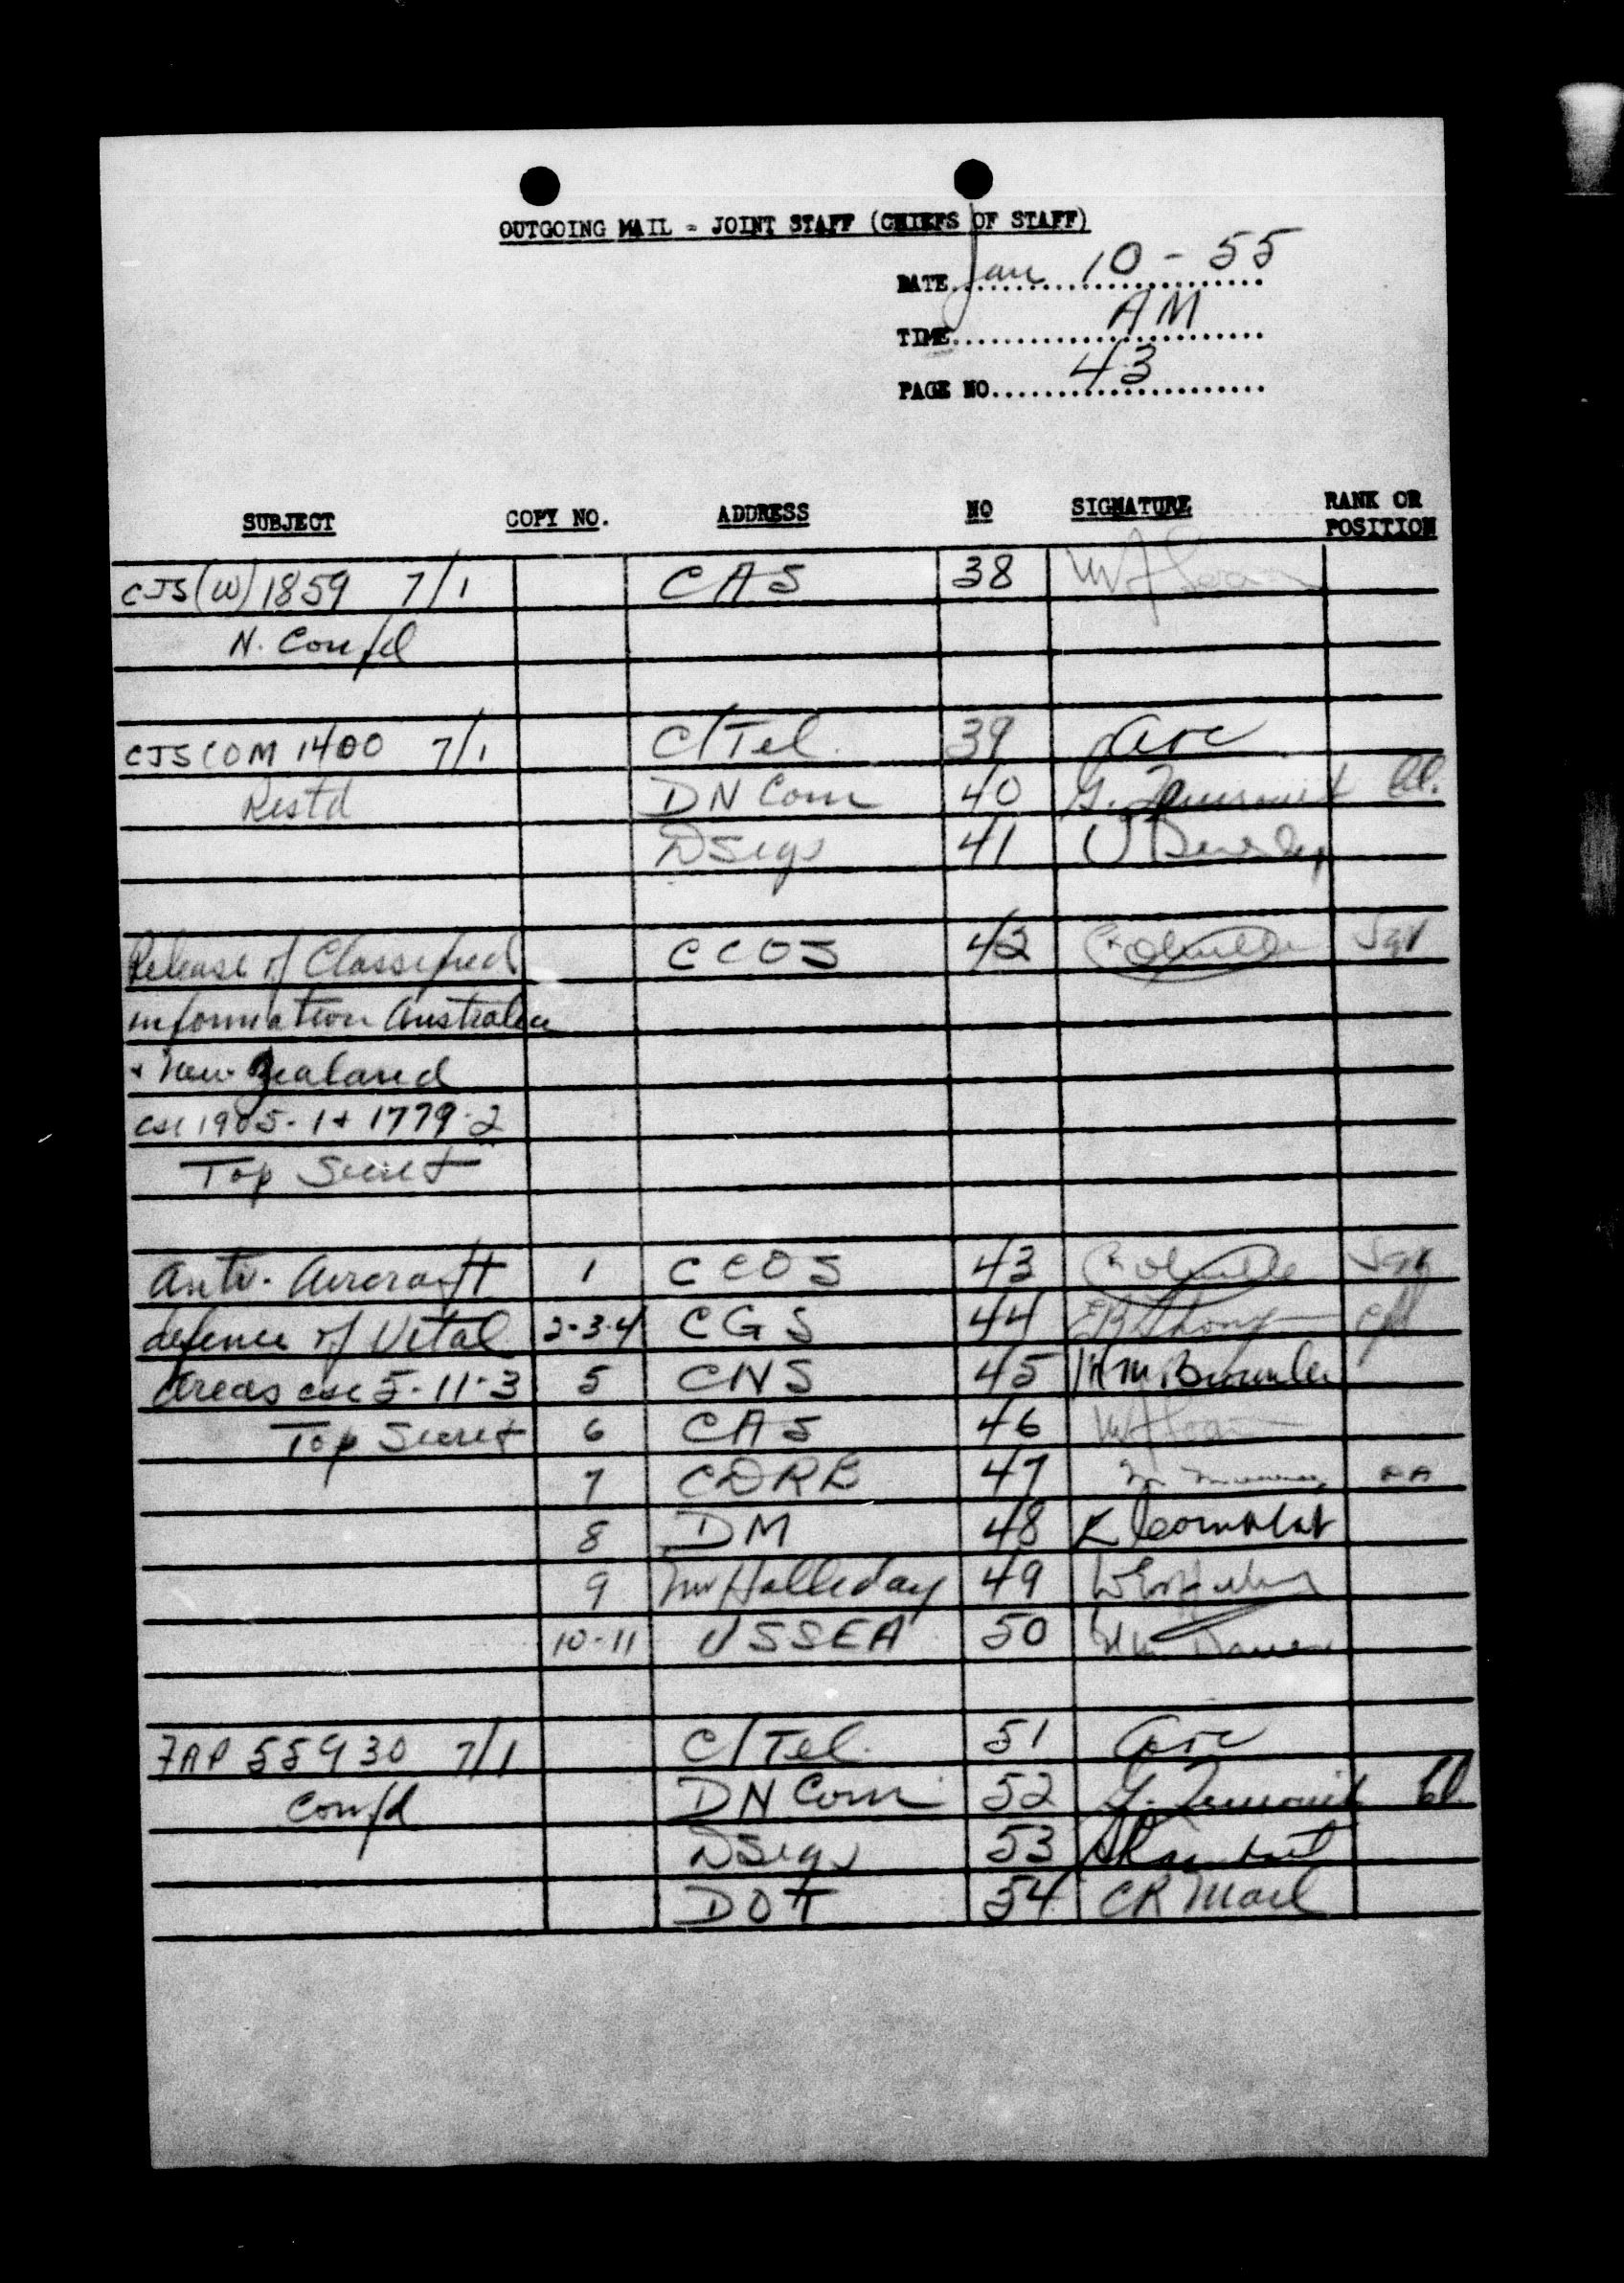 OUTGOING MAIL - JOINT STAFF (CHIEFS OF STAFF)
DATE Jan 10 - 55
TIME AM
PAGE NO 43
SUBJECT COPY NO. ADDRESS NO SIGNATURE RANK OR POSITION
CJS(W) 1859 7/1 CAS 38
N. Confd
CJSCOM 1400 7/1 C/Tel. 39
Restd DN Com 40 G. Cl.
DSigs 41
Release of Classified CCOS 42 Sgt
information Australia
+ New Zealand
csc 1905-1 + 1779-2
Top Secret
Anti-Aircraft 1 CCOS 43 Sgt
defence of Vital 2-3-4 CGS 44 Cpl
Areas csc 5-11-3 5 CNS 45
Top Secret 6 CAS 46
7 CDRB 47
8 DM 48
9 Mr Halleday 49
10-11 USSEA 50
FAP 55930 7/1 C/Tel. 51
Confd DN Com 52 G. Cl.
DSigs 53
DOT 54 CR Mail